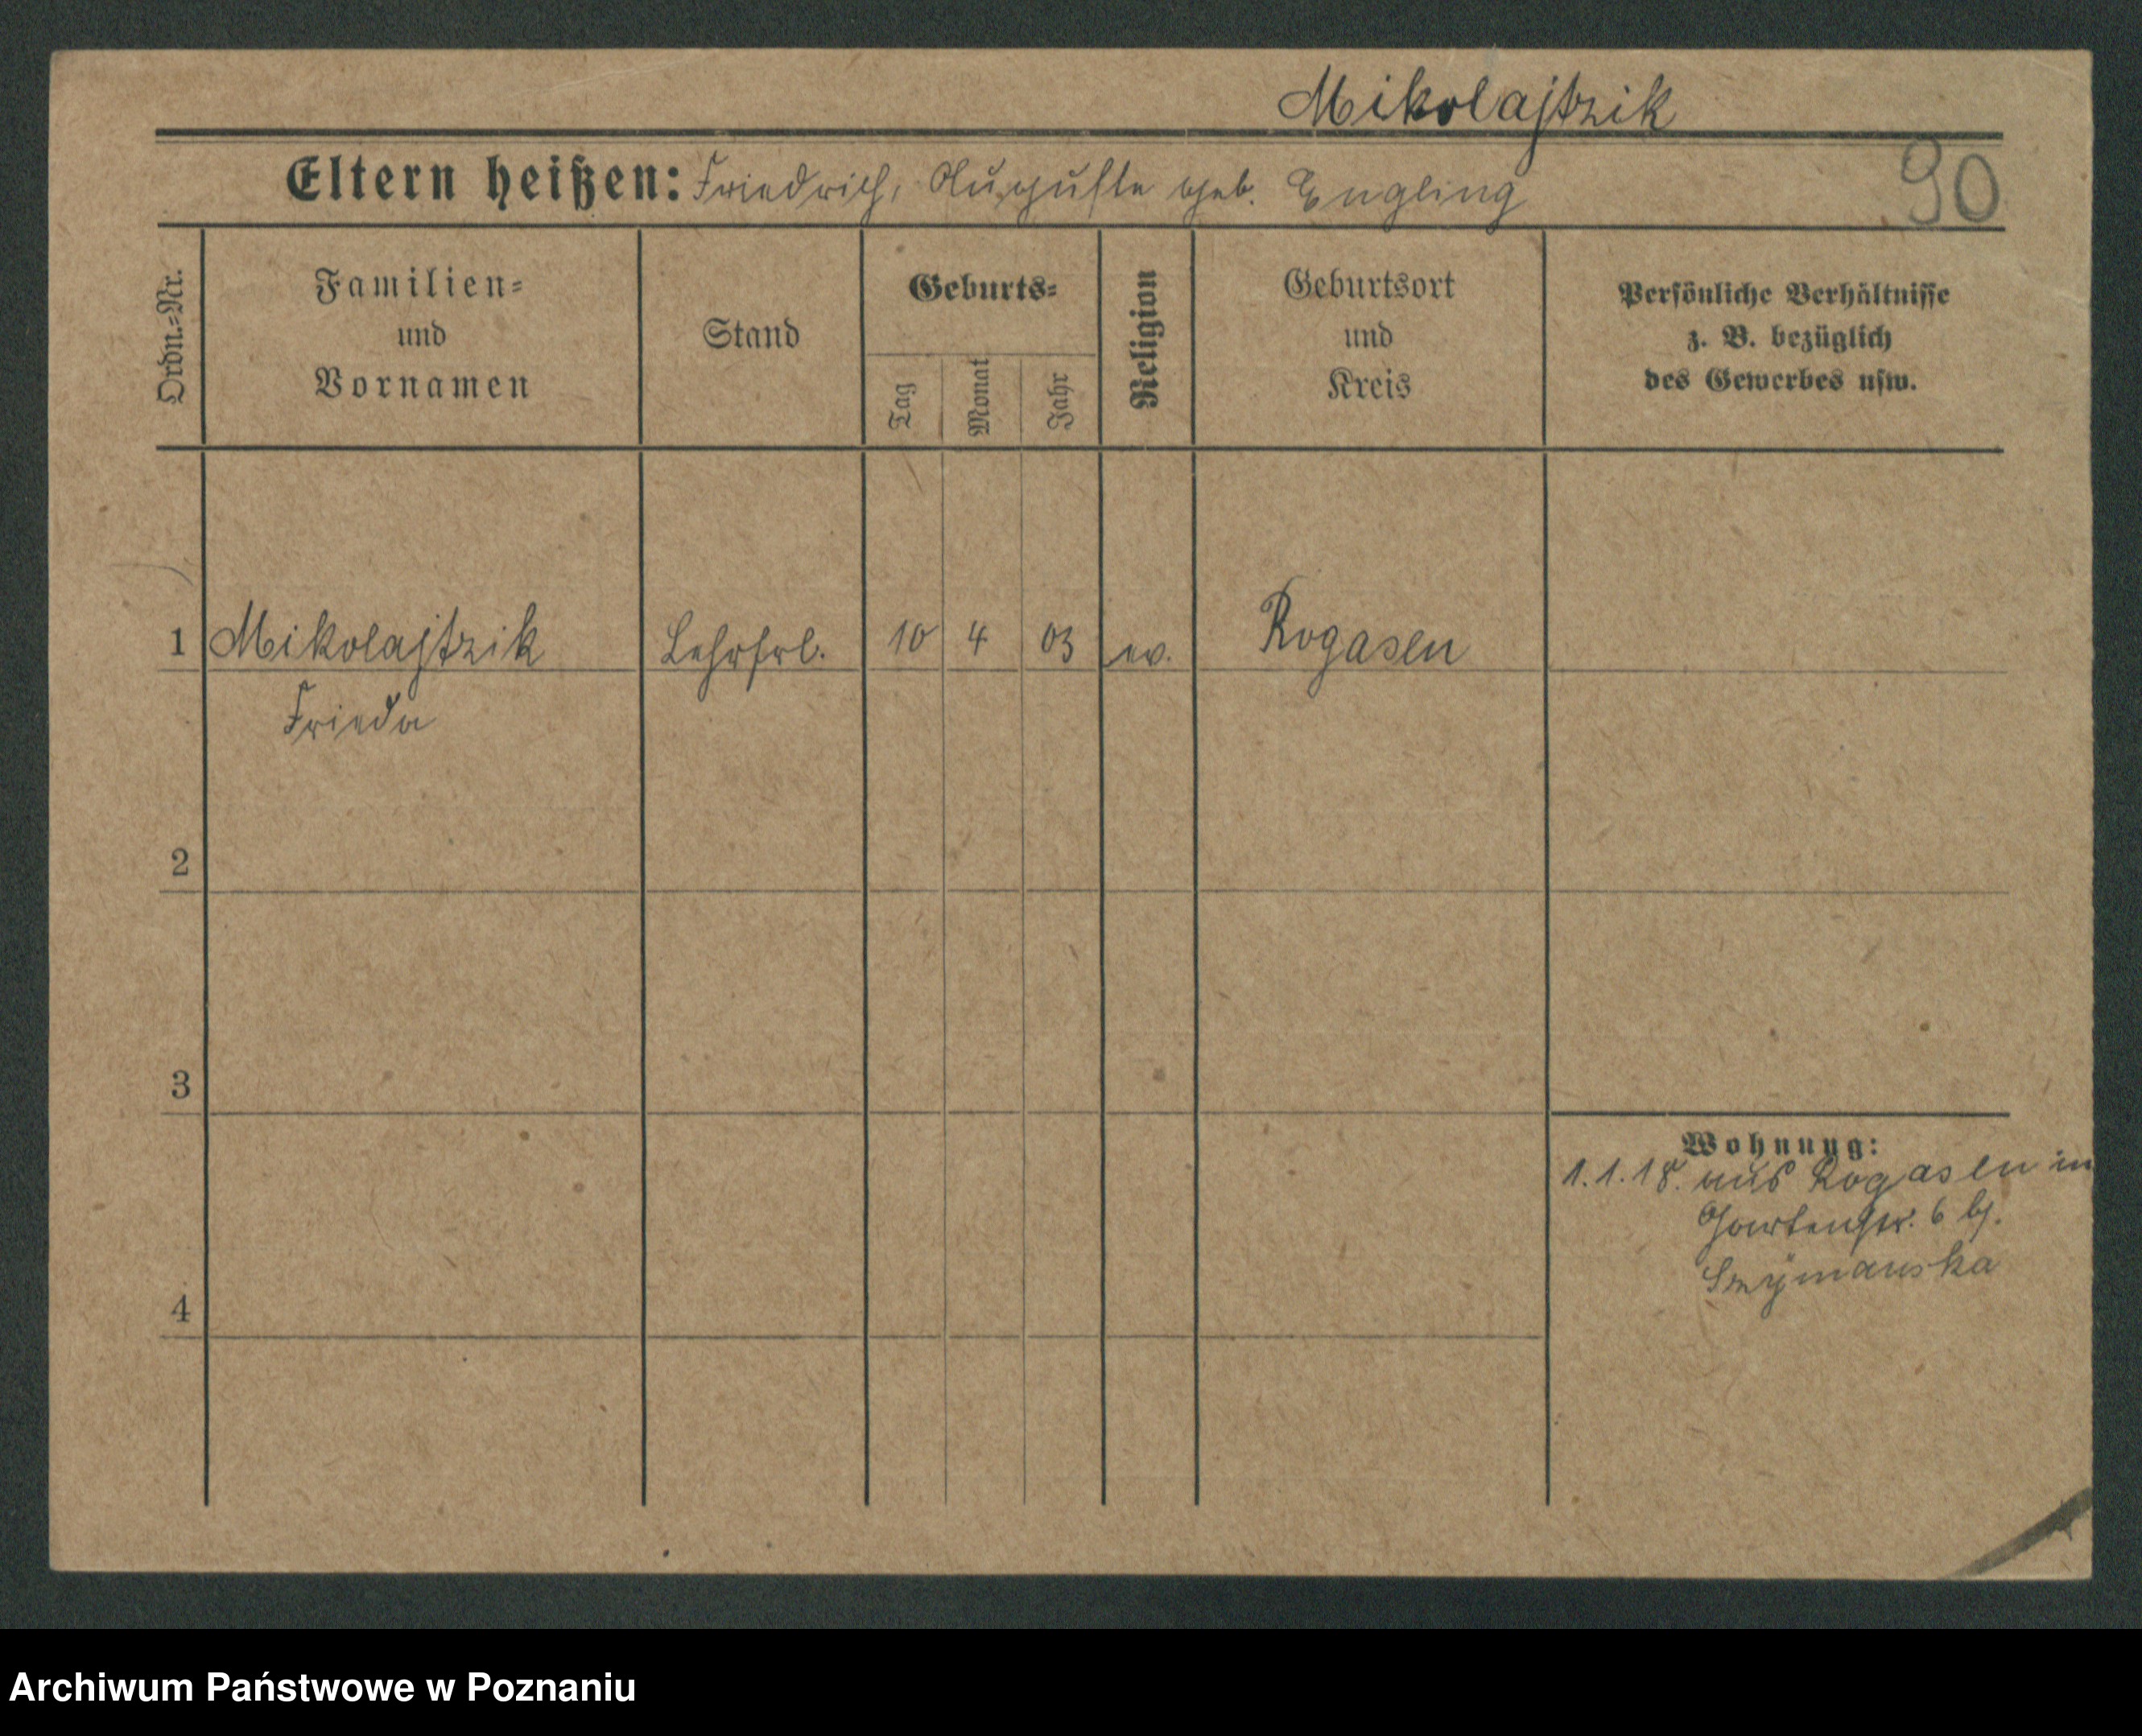 Mikolajtzik
Eltern heißen: Friedrich, Auguste geb. Engling
90
Ordn.=Nr.
Familien=
und
Vornamen
Stand
Geburts=
Tag
Monat
Jahr
Religion
Geburtsort
und
Kreis
Persönliche Verhältnisse
z. B. bezüglich
des Gewerbes usw.
1 Mikolajtzik Lehrfrl. 10 4 03 ev. Rogasen
Frieda
2
3
Wohnung:
1.1.18. aus Rogasen in
Gartenstr. 6 bj.
Szymanska
4
Archiwum Państwowe w Poznaniu